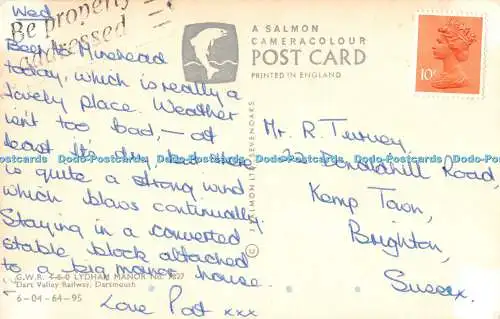 Wed
Be properly
addressed
Been to Minehead
today, which is really a
lovely place. Weather
isn't too bad, — at
least it's dry, but there
is quite a strong wind
which blows continually.
Staying in a converted
stable block attached
to a big manor house.
Love Pat xxx
A SALMON
CAMERACOLOUR
POST CARD
PRINTED IN ENGLAND
10P
J. SALMON LTD. SEVENOAKS ©
Mr. R. Turney,
Road
Kemp Town,
Brighton,
Sussex.
Dodo-Postcards Dodo-Postcards Dodo-Postcards Dodo-Postcards
G.W.R. 4-6-0 LYDHAM MANOR No. 7827
Dart Valley Railway, Dartmouth
6-04-64-95